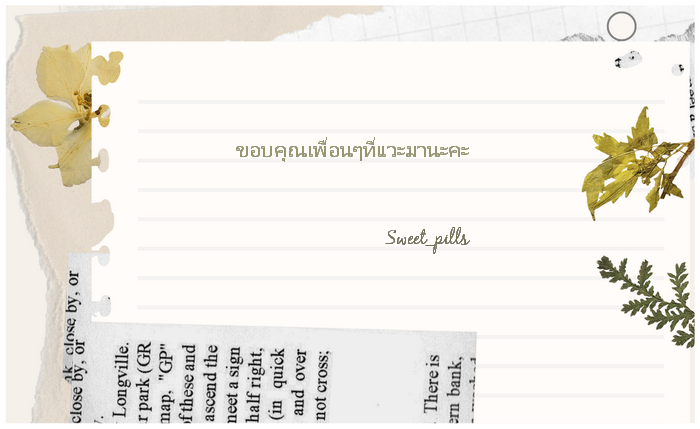 ขอบคุณเพื่อนๆที่แวะมานะคะ
Sweet_pills
close by, or
close by, or
Longville.
r park (GR
map, "GP"
of these and
ascend the
meet a sign
half right,
(in quick
and over
not cross;
There is
ern bank,